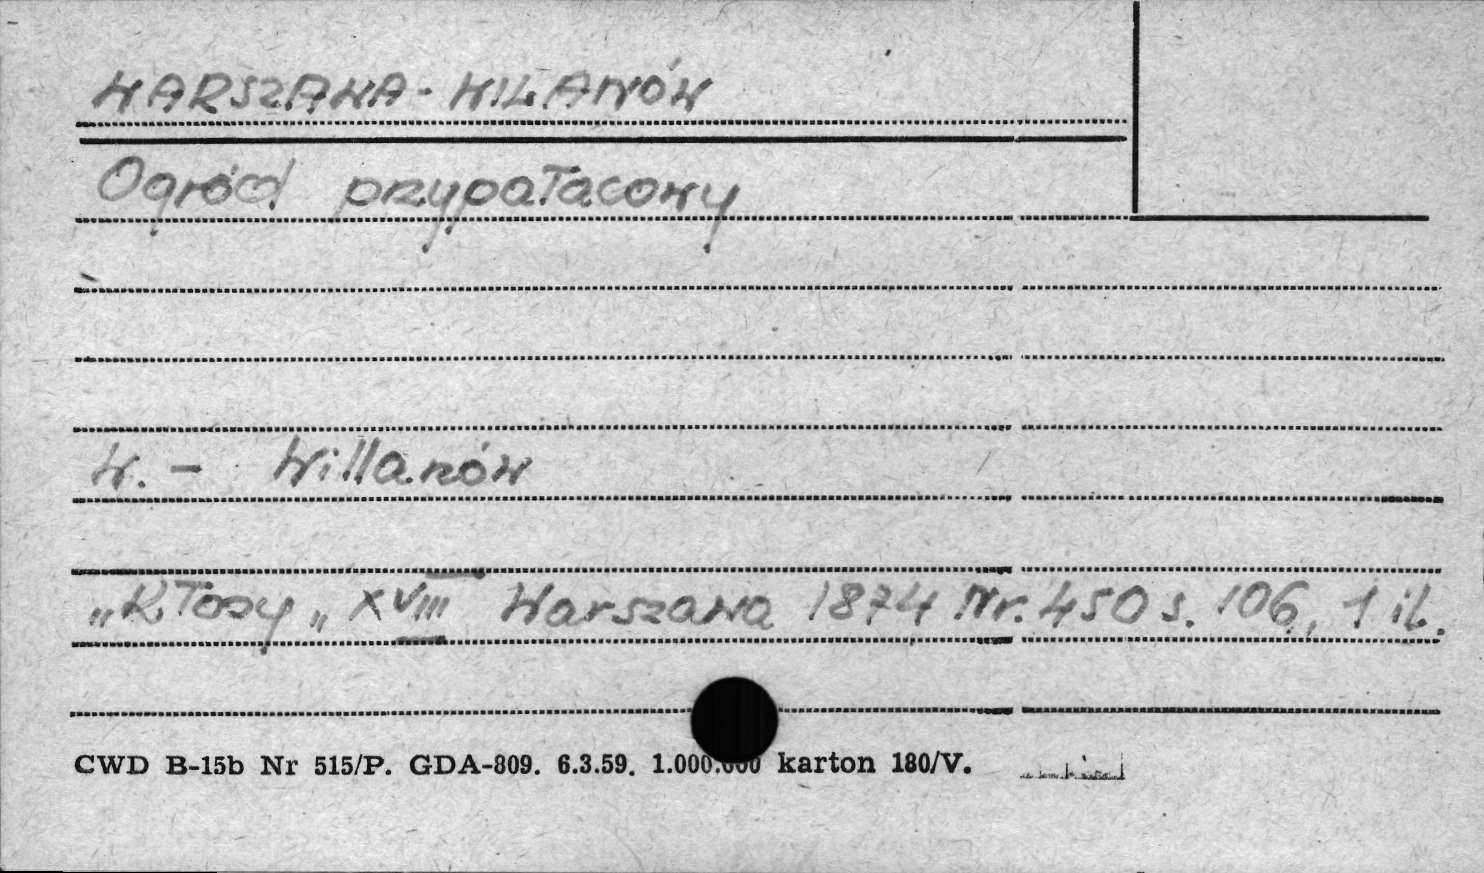 WARSZAWA - WILANÓW
Ogród przypałacowy
W. - Willanów
„Kłosy„ XVIII Warszawa 1874 Nr. 450 s. 106., 1 il.
CWD B-15b Nr 515/P. GDA-809. 6.3.59. 1.000.000 karton 180/V.